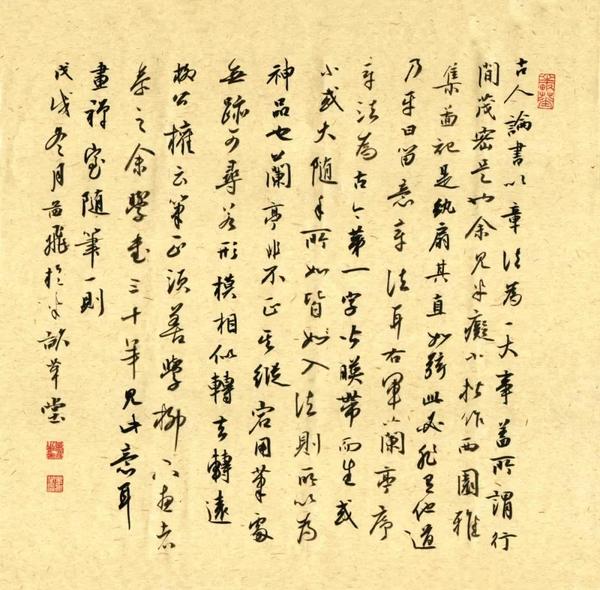 古人論書以章法為一大事蓋所謂行
間茂密是也余見米癡小楷作西園雅
集啚記是紈扇其直如弦此必非有他道
乃平日留意章法耳右軍蘭亭序
章法為古今第一字皆暎帶而生或
小或大隨手所如皆如入法則所以為
神品也蘭亭非不正其縱宕用筆處
無跡可尋若形模相似轉去轉遠
柳公權云筆正須善學柳下惠者
參之余學書三十年見此意耳
畫禪室随筆一則
戊戌冬月苗飛於半畝草堂